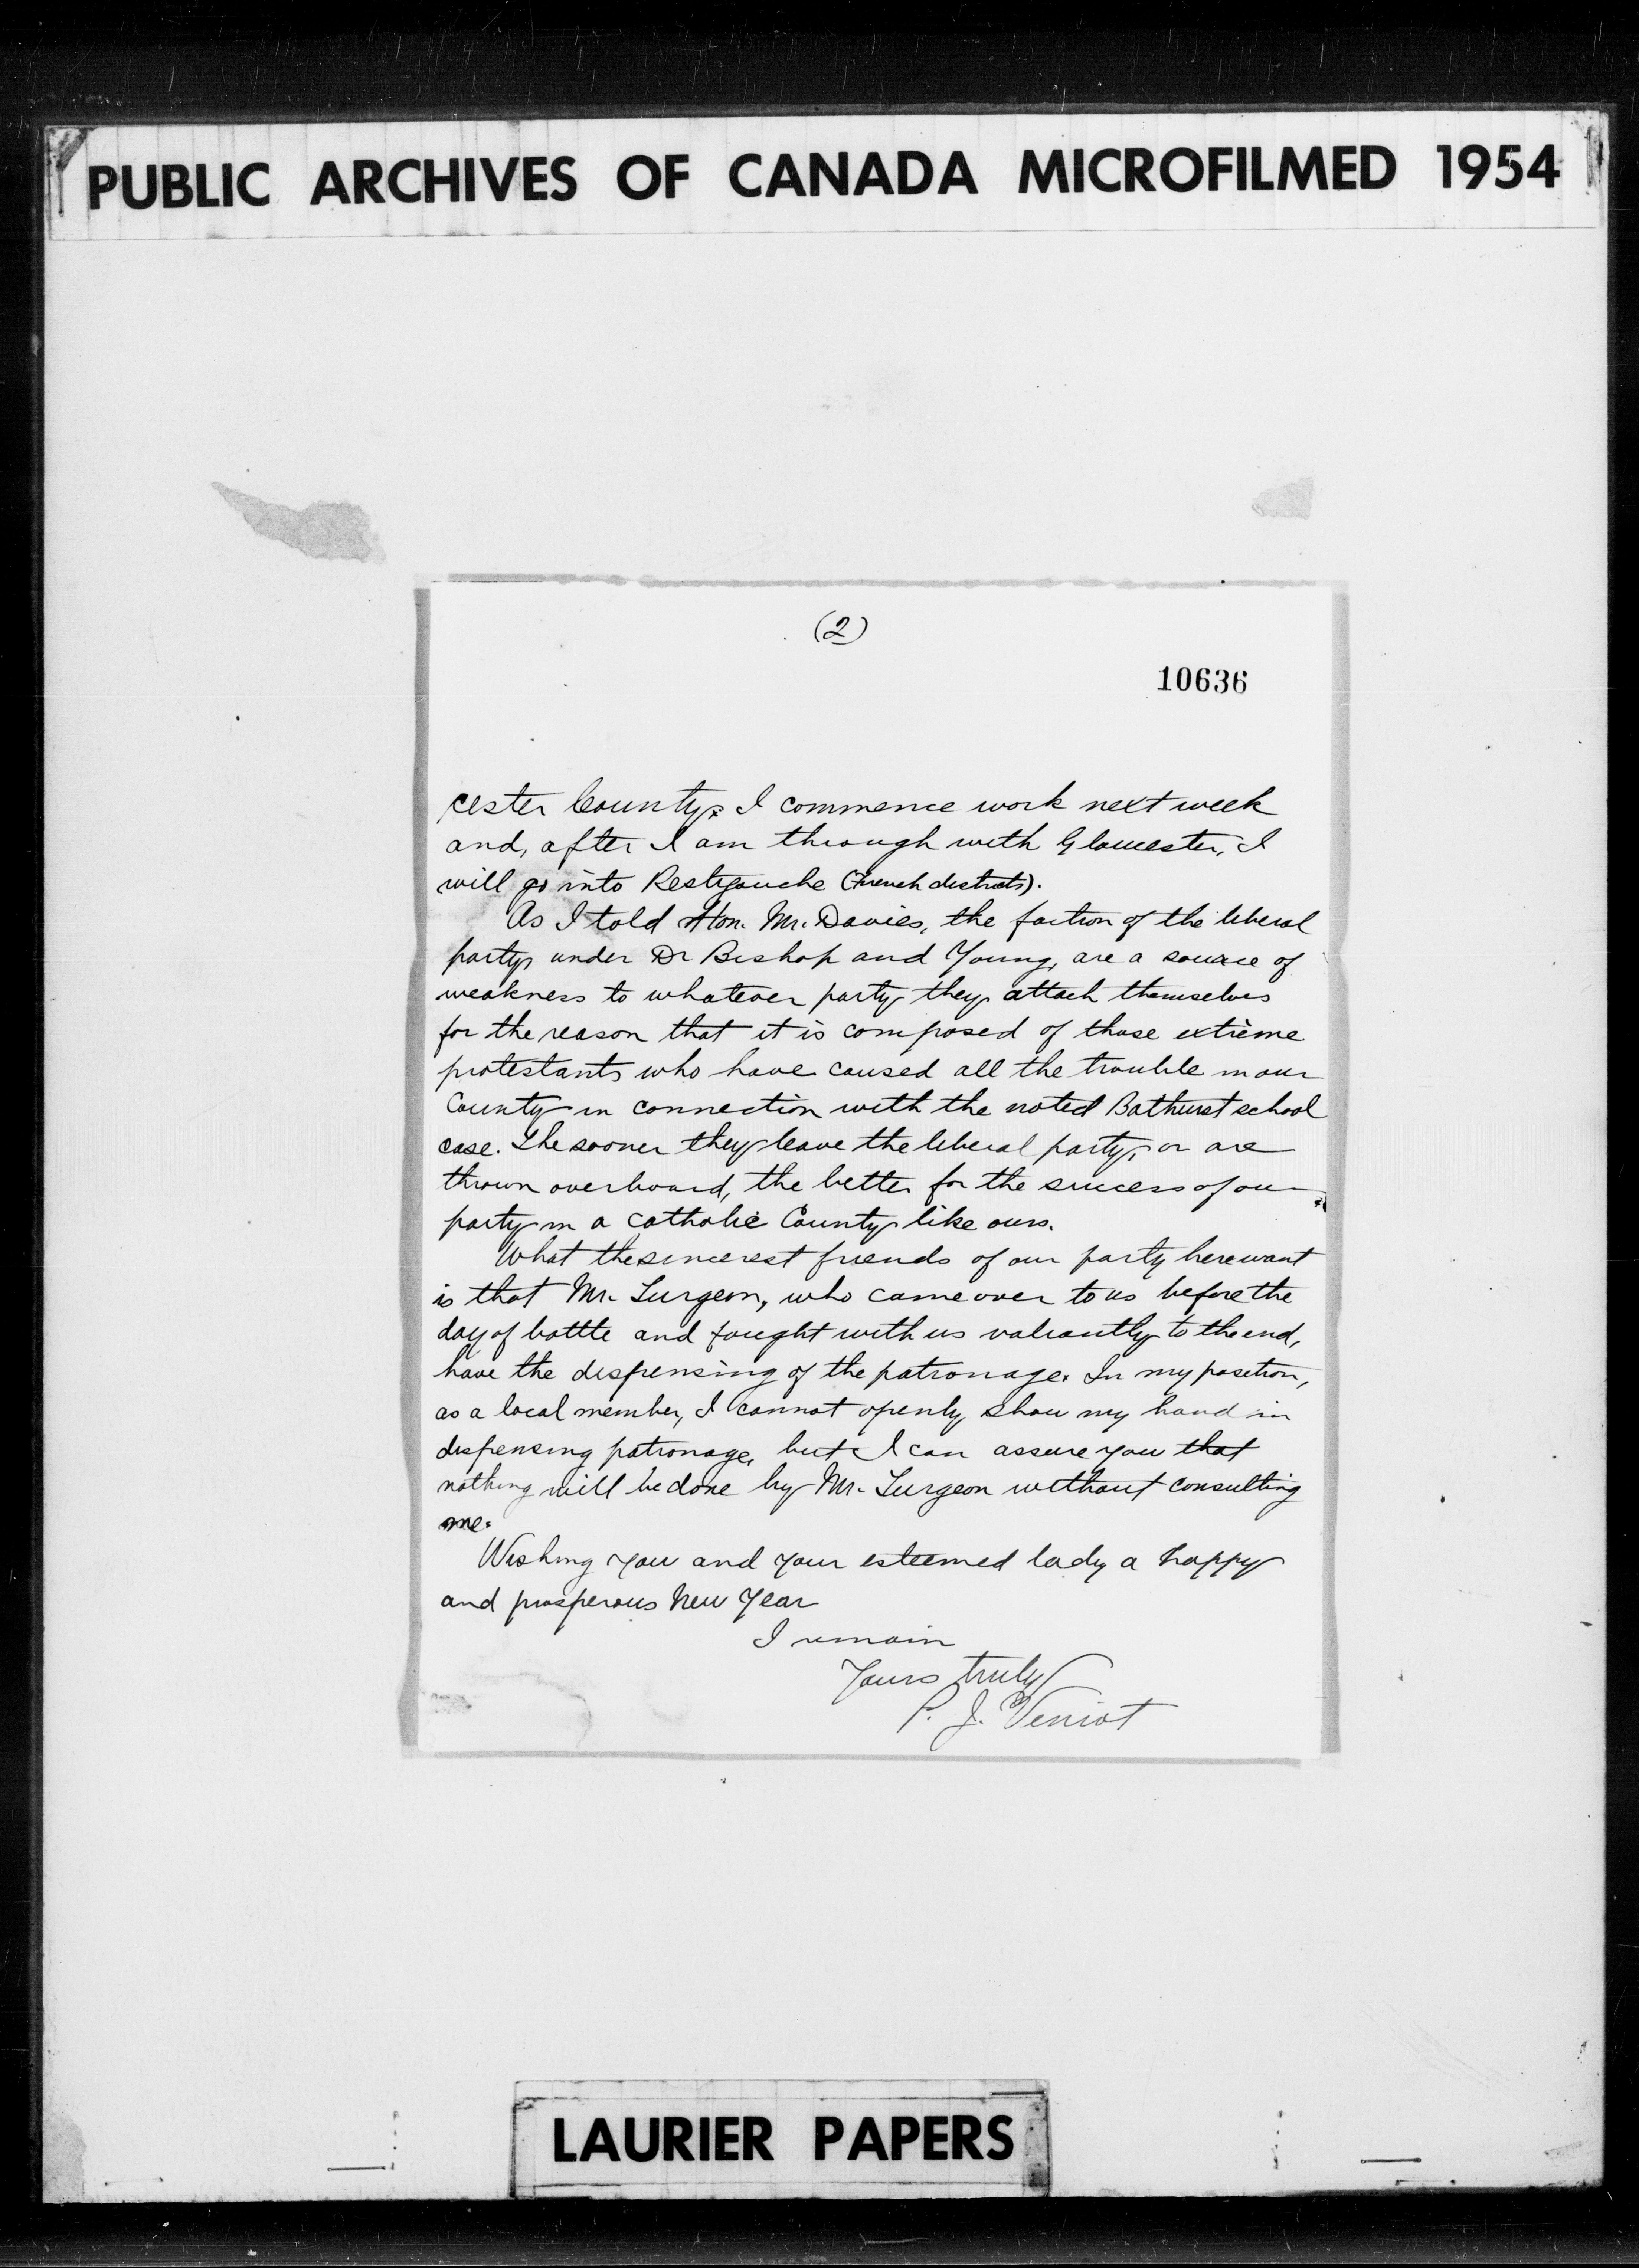 PUBLIC ARCHIVES OF CANADA MICROFILMED 1954
(2)
10636
cester County. I commence work next week
and, after I am through with Gloucester, I
will go into Restigouche (French districts).
As I told Hon. Mr. Davies, the faction of the liberal
party under Dr Bishop and Young, are a source of
weakness to whatever party they attach themselves
for the reason that it is composed of those extrème
protestants who have caused all the trouble in our
County in connection with the noted Bathurst school
case. The sooner they leave the liberal party, or are
thrown overboard, the better for the success of our
party in a catholic County like ours.
What the sincerest friends of our party here want
is that Mr. Turgeon, who came over to us before the
day of battle and fought with us valiantly to the end,
have the dispensing of the patronage. In my position,
as a local member, I cannot openly show my hand in
dispensing patronage, but I can assure you that
nothing will be done by Mr. Turgeon without consulting
me.
Wishing you and your esteemed lady a happy
and prosperous New Year
I remain
Yours truly
P. J. Veniot
LAURIER PAPERS